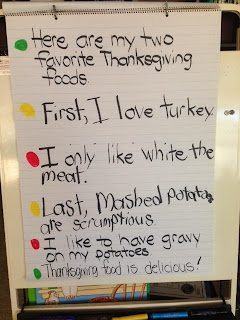 Here are my two
favorite Thanksgiving
foods.
First, I love turkey.
I only like white the
meat.
Last, Mashed potatos
are scrumptious.
I like to have gravy
on my potatoes
Thanksgiving food is delicious!